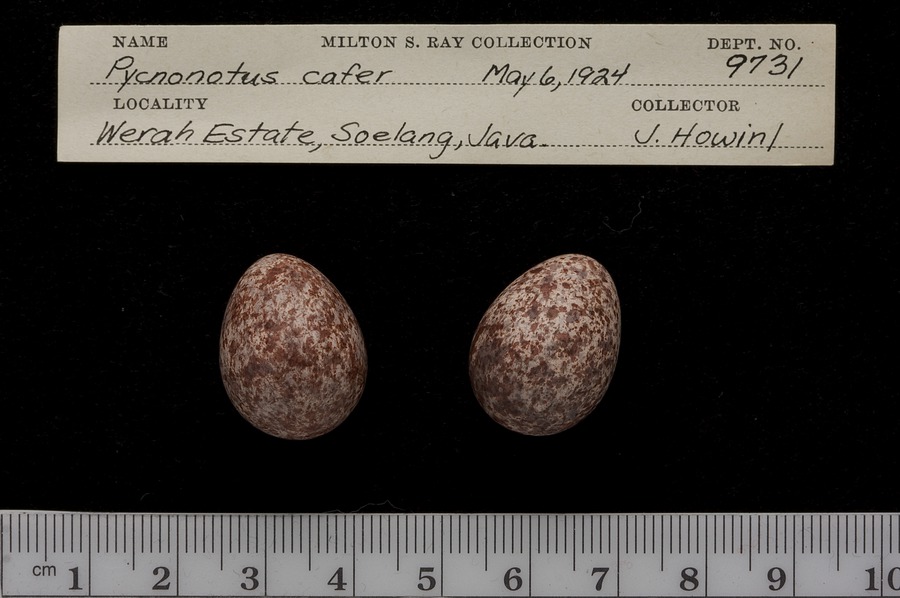 NAME MILTON S. RAY COLLECTION DEPT. NO.
Pycnonotus cafer May 6, 1924 9731
LOCALITY COLLECTOR
Werah Estate, Soelang, Java. J. Howinl
cm 1 2 3 4 5 6 7 8 9 10